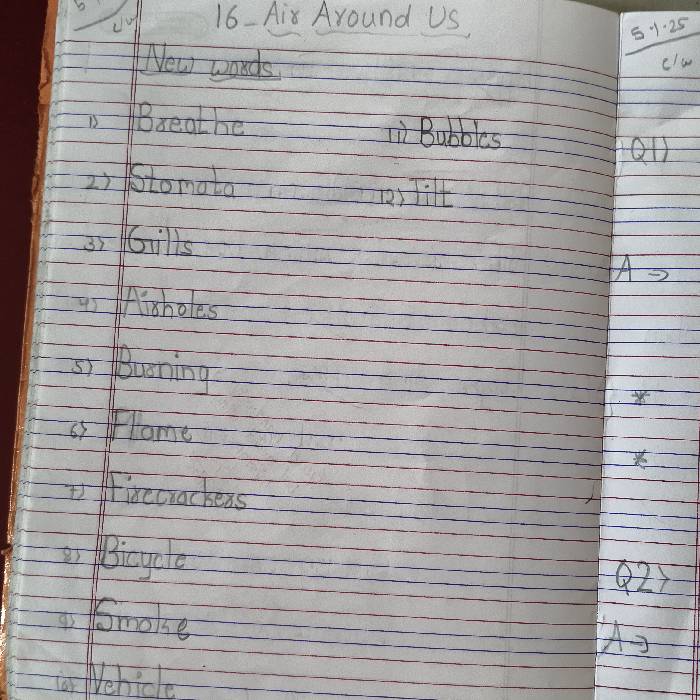 16 - Air Around Us
c/w
New words
1) Breathe
11) Bubbles
2) Stomata
12) Tilt
3) Grills
4) Airholes
5) Burning
6) Flame
7) Firecrackers
8) Bicycle
9) Smoke
10) Vehicle
5.1.25
c/w
Q1)
A →
*
*
Q2)
A →